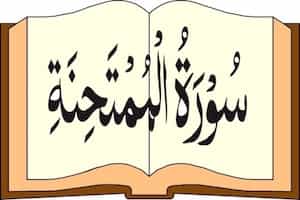 سُورَةُ الْمُمْتَحِنَةِ